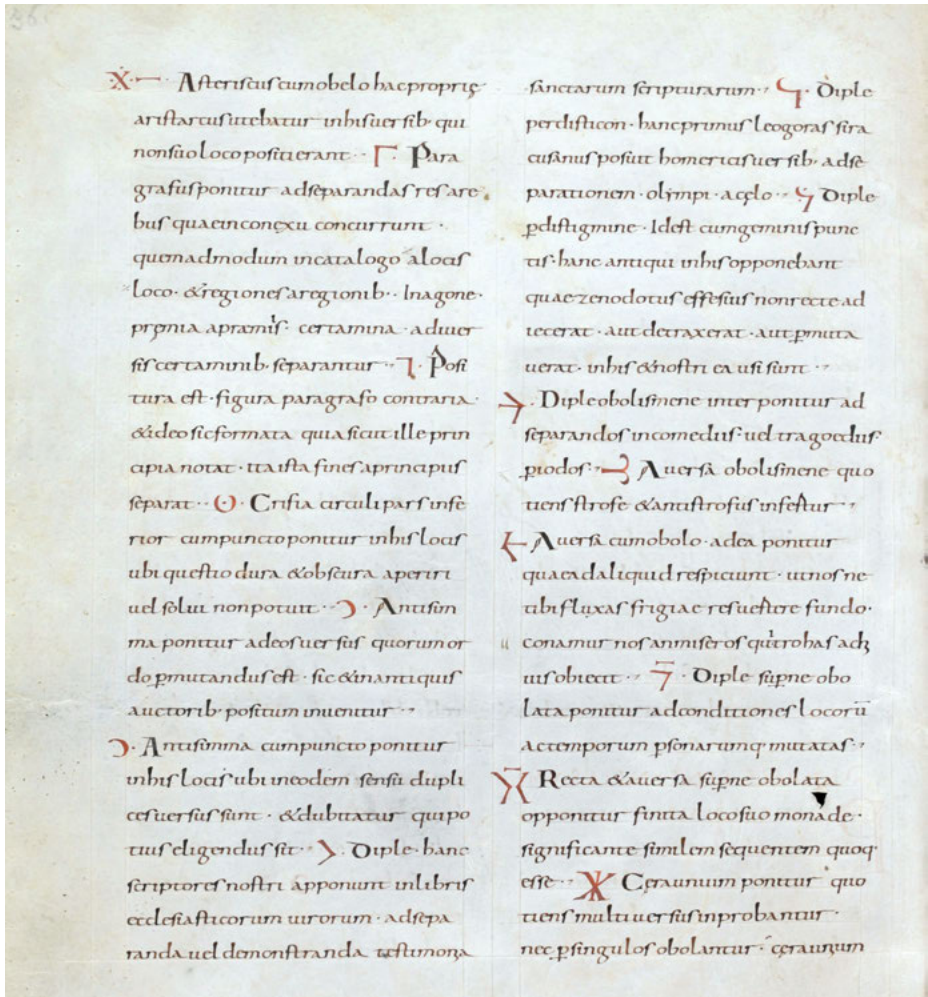 Asteriscus cum obelo hac proprię
aristarcus utebatur in his uersib· qui
non suo loco positi erant·· Γ· Para
grafus ponitur ad separandas res a re
bus quae in conęxu concurrunt·
quemadmodum in catalogo a locis
loco· & regiones a regionib·· In agone·
pręmia a pramis· certamina· a diuer
sis certaminib· separantur·· Posi
tura est· figura paragrafo contraria·
& ideo sic formata quia sicut ille prin
cipia notat· ita ista fines a principiis
separat·· Crisia circuli pars infe
rior cum puncto ponitur in his locis
ubi questio dura & obscura aperiri
uel solui non potuit·· Antisim
ma ponitur ad eos uersus quorum or
do p̱mutandus est· sic & in antiquis
auctorib· positum inuenitur··
Antisimma cum puncto ponitur
in his locis ubi in eodem sensu dupli
ces uersus sunt· & dubitatur qui po
tius eligendus sit·· Diple· hanc
scriptores nostri apponunt in libris
ecclesiasticorum uirorum· ad sepa
randa uel demonstranda testimonia
sanctarum scripturarum·· Diple
perdisticon· hanc primus leogoras sira
cusanus posuit homericis uersib· ad se
parationem· olympi· a cęlo·· Diple
p̱distigmine· Id est cum geminis punc
tis· hanc antiqui in his opponebant
quae zenodotus effesius non recte ad
iecerat· aut detraxerat· aut p̱muta
uerat· in his & nostri ea usi sunt··
Diple obolismene inter ponitur ad
separandos in comediis· uel tragoediis·
p̱iodos· Auersa obolismene quo
tiens strofe & antistrofus infertur··
Auersa cum obolo· ad ea ponitur
quae ad aliquid respiciunt· ut nos ne
tibi fluxas frigiae res uertere fundo·
conamur nos an miseros qui troas ach
iuis obiecit·· Diple sup̱ne obo
lata ponitur ad conditiones locorū
ac temporum p̱sonarumq· mutatas··
Recta & auersa sup̱ne obolata
opponitur finita loco suo monade·
significante similem sequentem quoq·
esse·· Cęraunium ponitur quo
tiens multi uersus inprobantur·
nec p̱ singulos obolantur· cęraunium